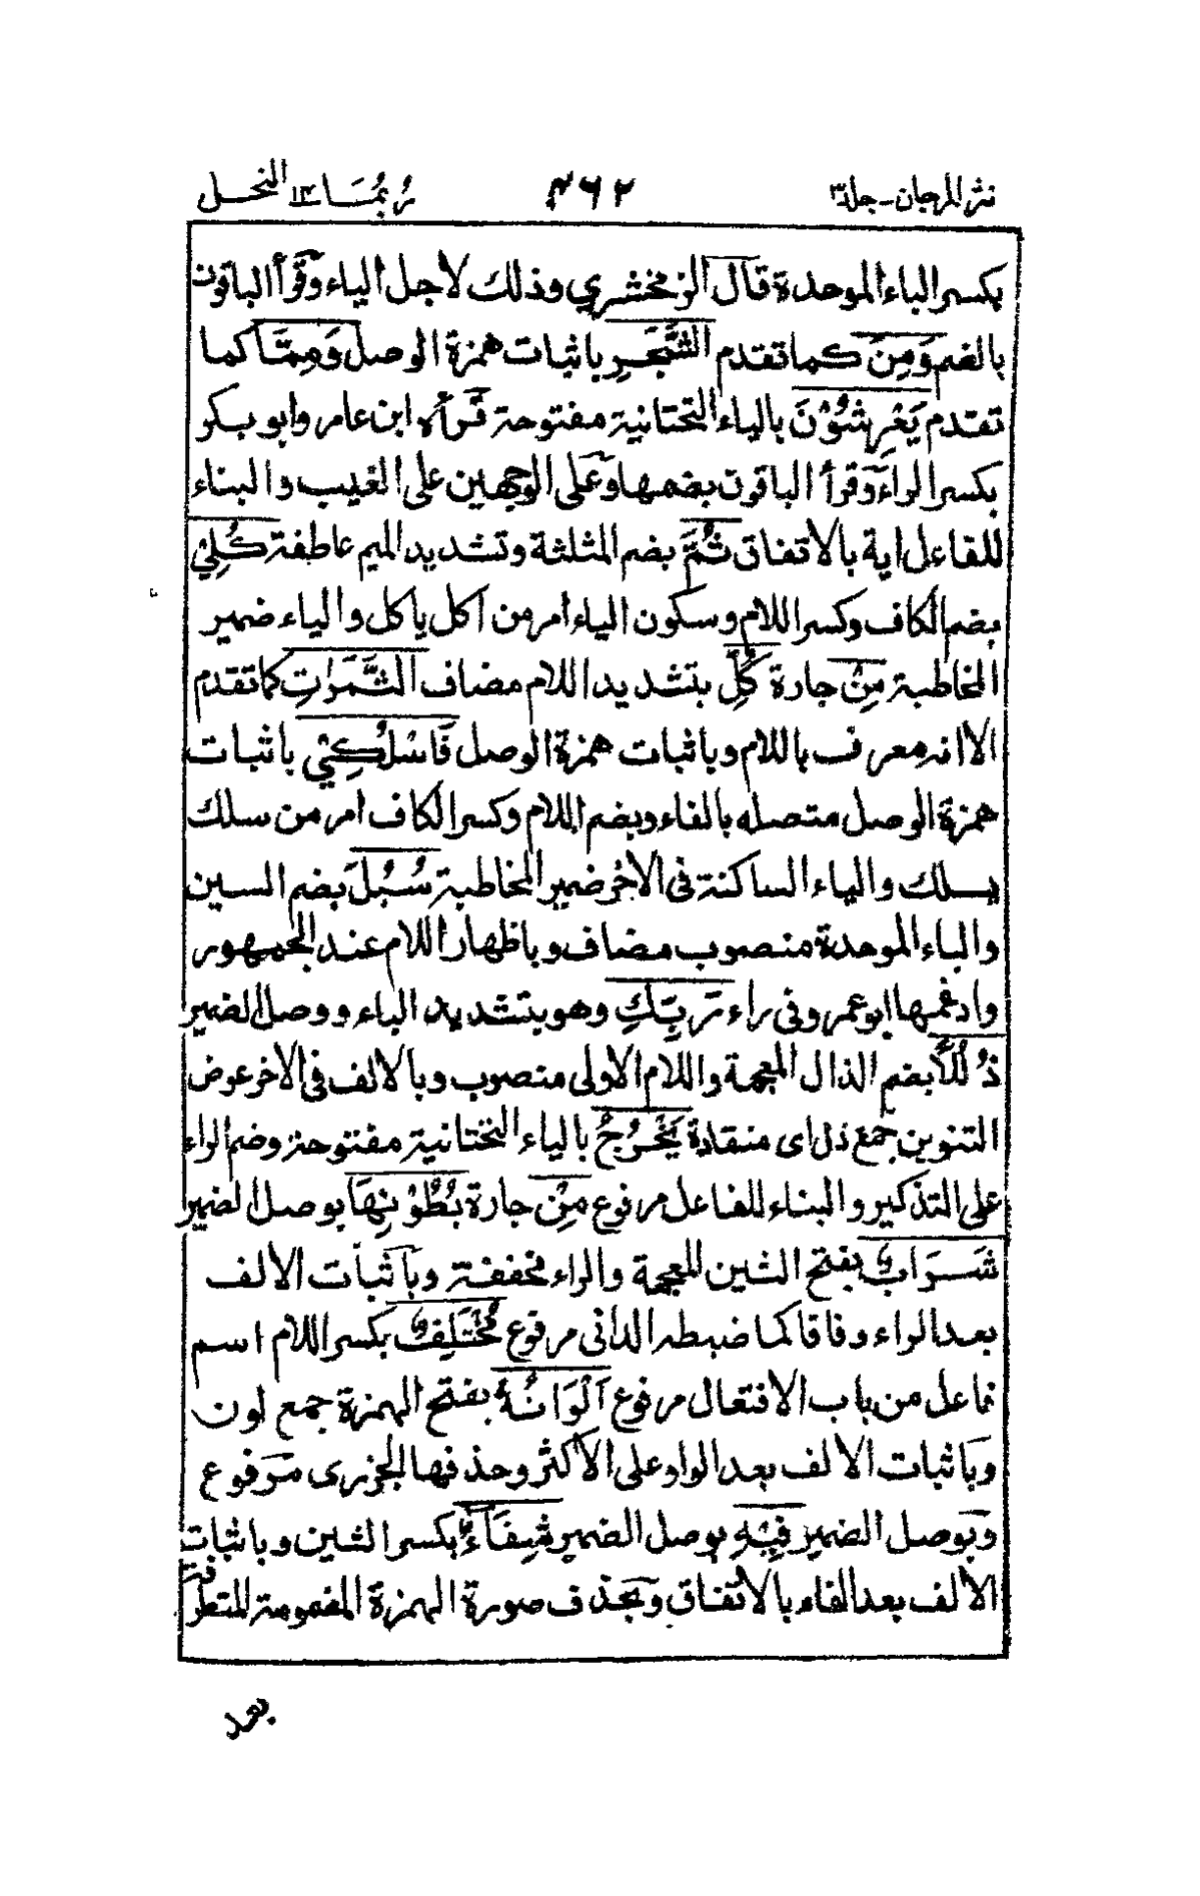 نثر المرجان - جلد ٣
٤٦٢
ربما ١٤ النحل
بكسر الباء الموحدة قال الزمخشري وذلك لاجل الياء وقرأ الباقون
بالضم وَمِنَ كما تقدم الشَّجَرِ باثبات همزة الوصل وَمِمَّا كما
تقدم يَعْرِشُوْنَ بالياء التحتانية مفتوحة قرأه ابن عامر وابو بكر
بكسر الراء وقرأ الباقون بضمها وعلى الوجهين على الغيب والبناء
للفاعل اية بالاتفاق ثُمَّ بضم المثلثة وتشديد الميم عاطفة كُلِيْ
بضم الكاف وكسر اللام وسكون الياء امر من اكل ياكل والياء ضمير
المخاطبة مِنْ جارة كُلِّ بتشديد اللام مضاف الثَّمَرٰتِ كما تقدم
الا انه معرف باللام وباثبات همزة الوصل فَاسْلُكِيْ باثبات
همزة الوصل متصله بالفاء وبضم اللام وكسر الكاف امر من سلك
يسلك والياء الساكنة فى الاخر ضمير المخاطبة سُبُلَ بضم السين
والباء الموحدة منصوب مضاف وباظهار اللام عند الجمهور
وادغمها ابو عمرو فى راء رَبِّكِ وهو بتشديد الباء ووصل الضمير
ذُلُلًا بضم الذال المعجمة واللام الاولى منصوب وبالالف فى الاخر عوض
التنوين جمع ذلل اى منقادة يَخْرُجُ بالياء التحتانية مفتوحة وضم الراء
على التذكير والبناء للفاعل مرفوع مِنْ جارة بُطُوْنِهَا بوصل الضمير
شَرَابٌ بفتح الشين المعجمة والراء مخففة وباثبات الالف
بعد الراء وفاقا كما ضبطه الدانى مرفوع مُخْتَلِفٌ بكسر اللام اسم
فاعل من باب الافتعال مرفوع اَلْوَانُهٗ بفتح الهمزة جمع لون
وباثبات الالف بعد الواو على الاكثر وحذفها الجزرى مرفوع
وبوصل الضمير فِيْهِ بوصل الضمير شِفَاءٌ بكسر الشين وباثبات
الالف بعد الفاء بالاتفاق وبحذف صورة الهمزة المضمومة المتطرفة
بعد